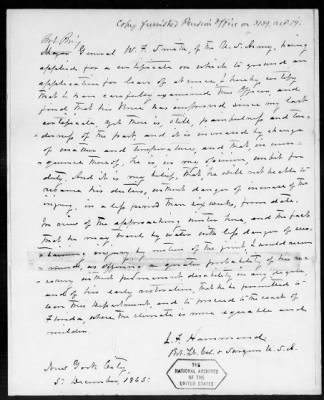 Copy furnished Pension Office on 3159, Oct 29.
Bvt. Brig.
Major General W. F. Smith, of the U. S. Army, having
applied for a certificate on which to ground an
application for leave of absence, I hereby certify
that I have carefully examined this Officer and
find that his knee has improved since my last
certificate. Yet there is, still, painfulness and ten-
derness of the part, and it is increased by changes
of weather and temperature, and that, in conse-
quence thereof, he is, in my opinion, unfit for
duty. And it is my belief, that he will not be able to
resume his duties, without danger of increase of the
injury, in a less period than sixty weeks, from date.
In view of the approaching winter here, and the fact
that he may travel by water with less danger of
injury by motion of the joint, I would recom-
mend, as offering a greater probability of his re-
covery without permanent disability in any degree,
and of his early restoration, that he be permitted to
leave this Department, and to proceed to the coast of
Florida where the climate is more equable and
milder.
J. F. Hammond,
Bvt. Lt. Col. & Surgeon U. S. A.
New York City,
5. December, 1865.
THE
NATIONAL ARCHIVES
OF THE
UNITED STATES